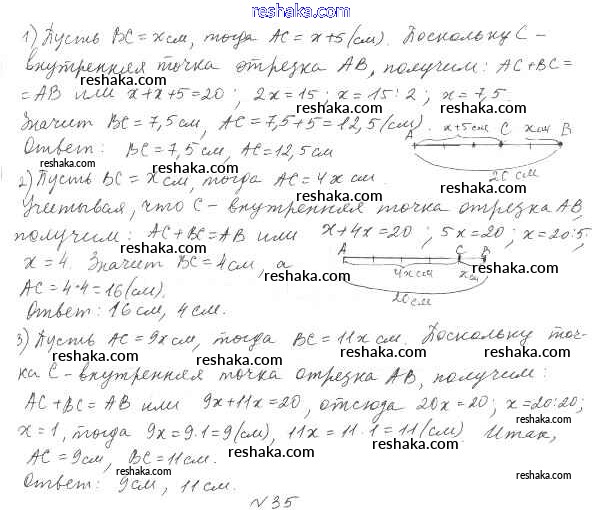 reshaka.com
1) Пусть BC = x см, тогда AC = x+5 (см). Поскольку C –
внутренняя точка отрезка AB, получим: AC+BC=
reshaka.com reshaka.com
= AB или x+x+5=20; 2x=15; x=15:2; x=7,5.
reshaka.com reshaka.com
Значит BC=7,5 см, AC=7,5+5=12,5 (см).
A x+5 см C x см B
Ответ: BC=7,5 см, AC=12,5 см
20 см
reshaka.com reshaka.com
2) Пусть BC = x см, тогда AC = 4x см.
reshaka.com
Учитывая, что C – внутренняя точка отрезка AB,
получим: AC+BC=AB или x+4x=20; 5x=20; x=20:5;
reshaka.com reshaka.com
x=4. Значит BC=4 см, а
A 4x см C x см B
reshaka.com
AC=4·4=16 (см).
20 см
reshaka.com
Ответ: 16 см, 4 см.
reshaka.com reshaka.com
3) Пусть AC = 9x см, тогда BC = 11x см. Поскольку точ-
reshaka.com reshaka.com
ка C – внутренняя точка отрезка AB, получим:
reshaka.com
AC+BC=AB или 9x+11x=20, отсюда 20x=20; x=20:20;
reshaka.com reshaka.com
x=1, тогда 9x=9·1=9 (см), 11x=11·1=11 (см) Итак,
reshaka.com reshaka.com
AC=9 см, BC=11 см.
reshaka.com
Ответ: 9 см, 11 см.
reshaka.com reshaka.com
№35